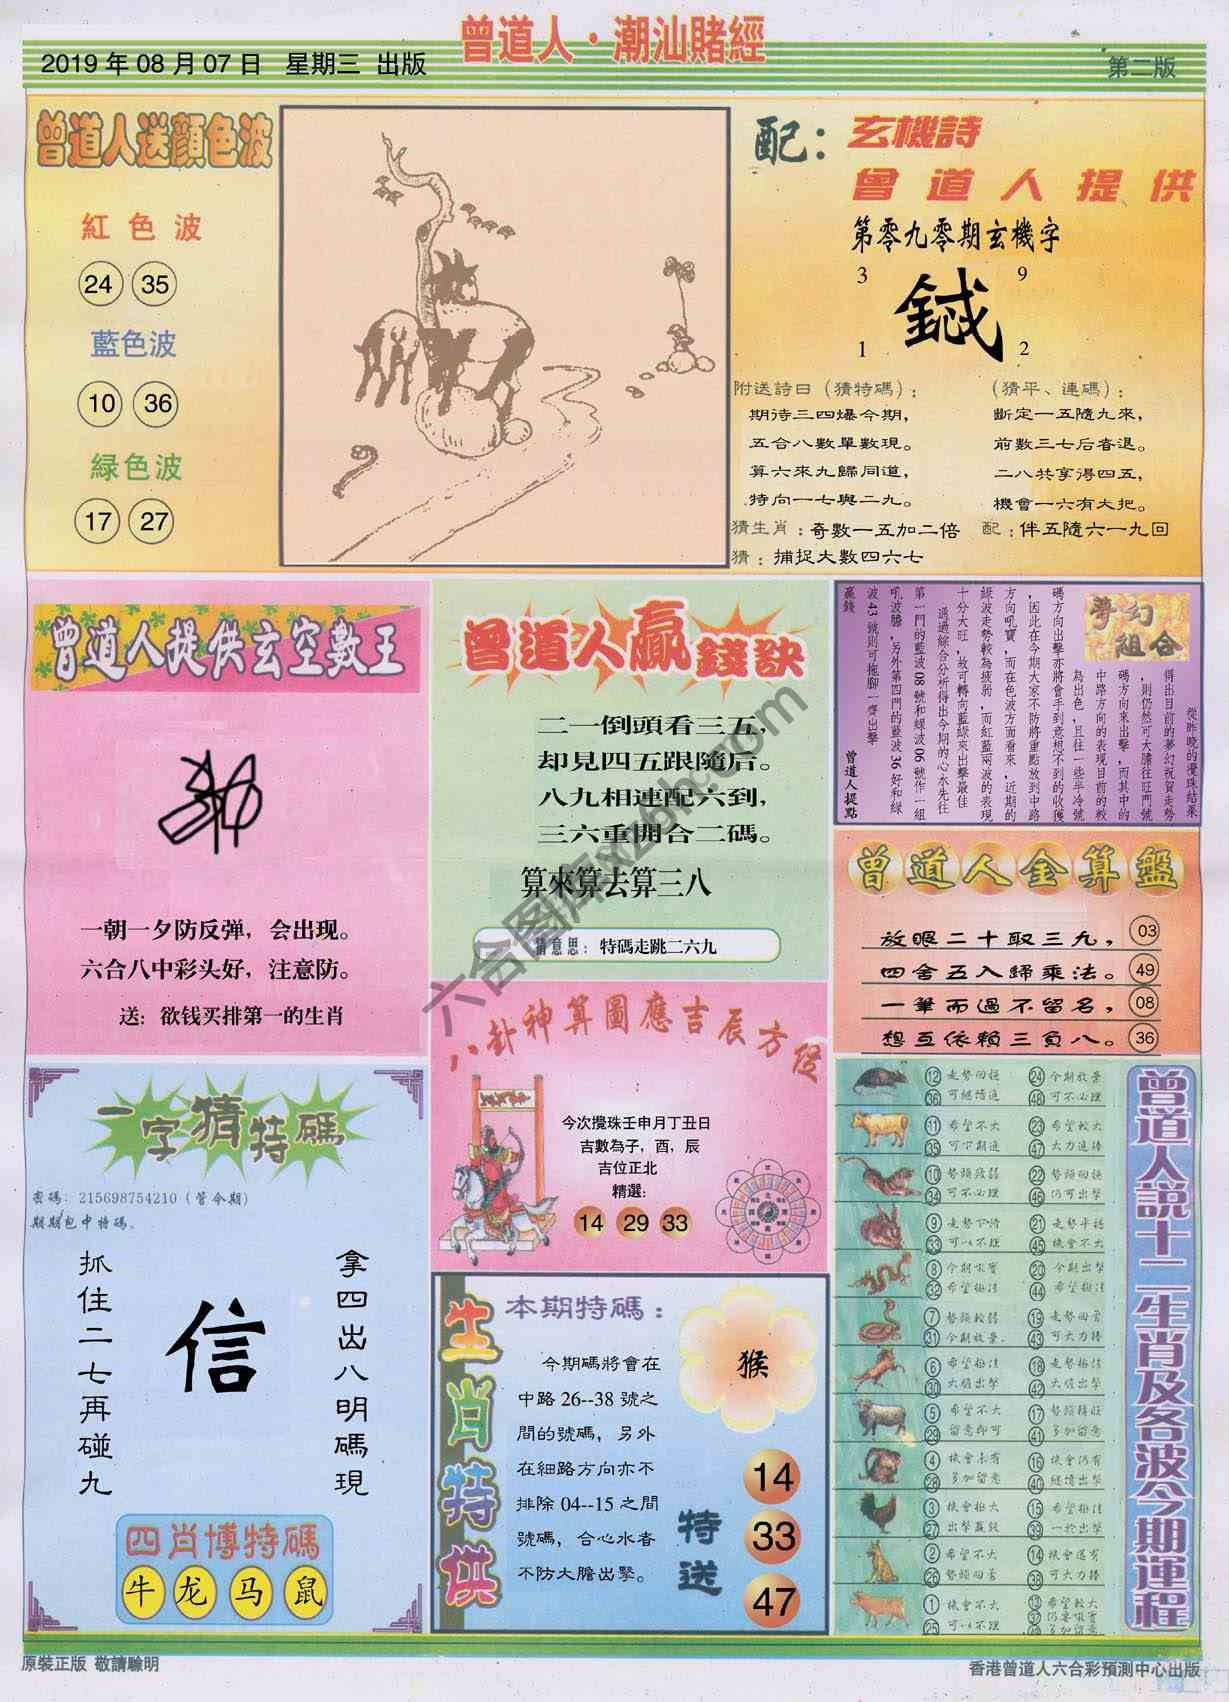 曾道人·潮汕賭經
2019年08月07日 星期三 出版
第二版
曾道人送顔色波
紅色波
24 35
藍色波
10 36
緑色波
17 27
配：
玄機詩
曾道人提供
第零九零期玄機字
3 9
1 2
附送詩曰（猜特碼）：
期待三四爆今期，
五合八數單數現。
算六來九歸同道，
特向一七與二九。
（猜平、連碼）：
斷定一五隨九來，
前數三七后春退。
二八共享得四五，
機會一六有大把。
猜生肖：奇數一五加二倍
配：伴五隨六一九回
猜：捕捉大數四六七
曾道人提供玄空數王
一朝一夕防反弹，会出现。
六合八中彩头好，注意防。
送：欲钱买排第一的生肖
曾道人贏錢訣
二一倒頭看三五，
却見四五跟隨后。
八九相連配六到，
三六重開合二碼。
算來算去算三八
猜意思：特碼走跳二六九
夢幻組合
從昨晚的攪珠結果
得出目前的夢幻祝賀走勢
，則仍然可大膽往旺門號
碼方向來出擊，而其中的
中路方向的表現目前的較
為出色，且往一些半冷號
碼方向出擊亦將會手到意想不到的收獲
，因此在今期大家不防將重點放到中路
方向吼寶，而在色波方面看來，近期的
緑波走勢較為疲弱，而紅藍兩波的表現
十分大旺，故可轉向藍緑來出擊最佳
通過綜合分析得出今期的心水先往
第一門的藍波08號和緑波06號作一組
吼波膽，另外第四門的藍波36好和緑
波43號則可拖腳一齊出擊
贏錢
曾道人提點
曾道人金算盤
放眼二十取三九， 03
四舍五入歸乘法。 49
一筆而過不留名， 08
想互依賴三負八。 36
一字猜特碼
密碼：215698754210（管令期）
期期包中特碼。
拿四出八明碼現
信
抓住二七再碰九
四肖博特碼
牛 龙 马 鼠
八卦神算圖應吉辰方位
今次攪珠壬申月丁丑日
吉數為子，酉，辰
吉位正北
精選：
14 29 33
生肖特供
本期特碼：
猴
今期碼將會在
中路26--38號之
間的號碼，另外
在細路方向亦不
排除04--15之間
號碼，合心水者
不防大膽出擊。
特送
14
33
47
曾道人説十二生肖及各波今期運程
12 走勢回換 24 今期放棄
36 可繼續追 48 可不必理
11 希望不大 23 希望較大
35 可下期追 47 大力追捧
10 勢頭疲弱 22 勢頭回換
34 可不必理 46 仍可出擊
9 走勢下滑 21 走勢平穩
33 可以不理 45 機會不大
8 今期吸寶 20 今期出擊
32 希望極佳 44 希望極佳
7 勢頭較弱 19 走勢回套
31 今期放棄 43 可大力捧
6 希望極佳 18 走勢極佳
30 大膽出擊 42 大膽出擊
5 希望不大 17 勢頭轉旺
29 留意即可 41 多加留意
4 機會未有 16 機會仍有
28 多加留意 40 繼續出擊
3 機會極大 15 希望極佳
27 出擊贏錢 39 一於出擊
2 希望不大 14 機會還有
26 勢頭回套 38 可大力捧
1 機會不大 13 希望較大
25 可以不理 37 仍要吸寶
49 多加留意
原裝正版 敬請驗明
香港曾道人六合彩預測中心出版
六合图库xzbh.com